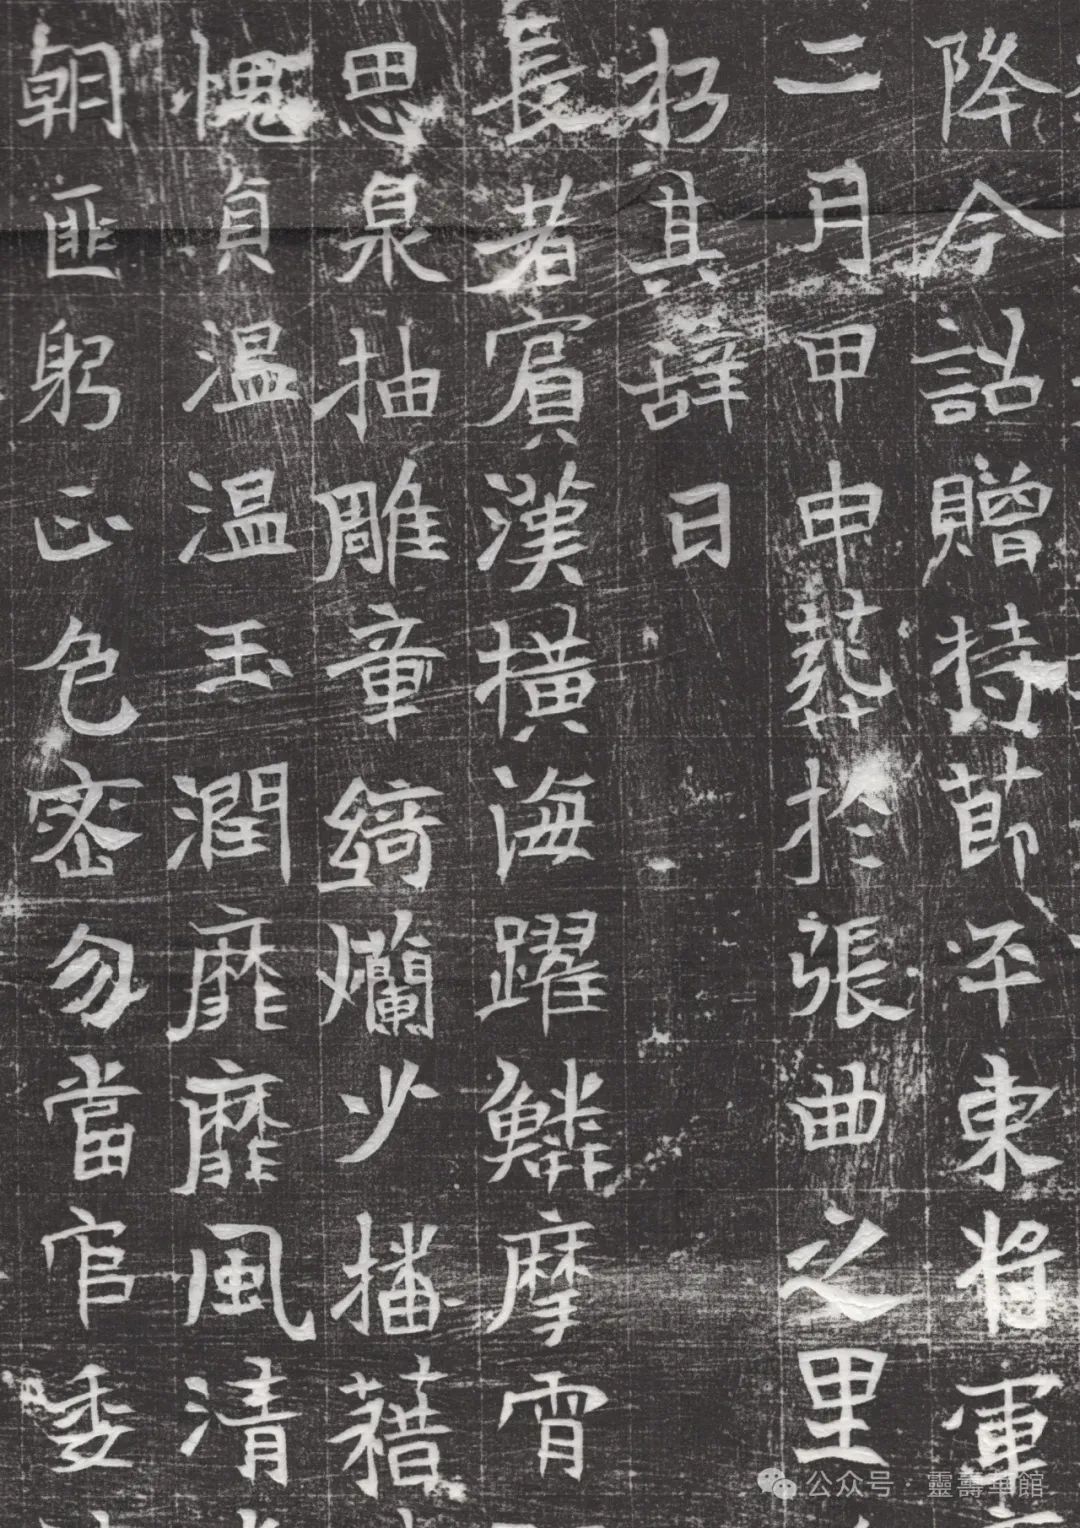 降今詔贈持節平東將軍
二月甲申葬於張曲之里
其辭曰
長者賓漢橫海躍鱗摩霄
思泉抽雕章綺爛少播藉
愧貞溫溫玉潤靡靡風清
朝匪躬正色密勿當官委
公众号 · 靈壽華館